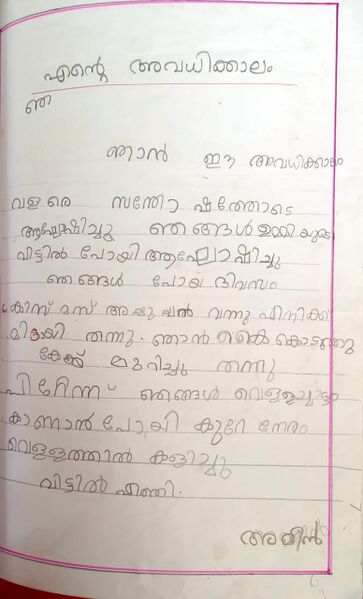 എന്റെ അവധിക്കാലം
ഞ
ഞാൻ ഈ അവധിക്കാലം
വളരെ സന്തോഷത്തോടെ
ആഘോഷിച്ചു ഞങ്ങൾ ഉമ്മിയുടെ
വീട്ടിൽ പോയി ആഘോഷിച്ചു
ഞങ്ങൾ പോയ ദിവസം
വന്നു എനിക്ക്
മിഠായി തന്നു. ഞാൻ കൈ കൊടുത്തു
കേക്ക് മുറിച്ചു തന്നു
പിറ്റേന്ന് ഞങ്ങൾ വെള്ളച്ചാട്ടം
കാണാൻ പോയി കുറേ നേരം
വെള്ളത്തിൽ കളിച്ചു
വീട്ടിൽ എത്തി.